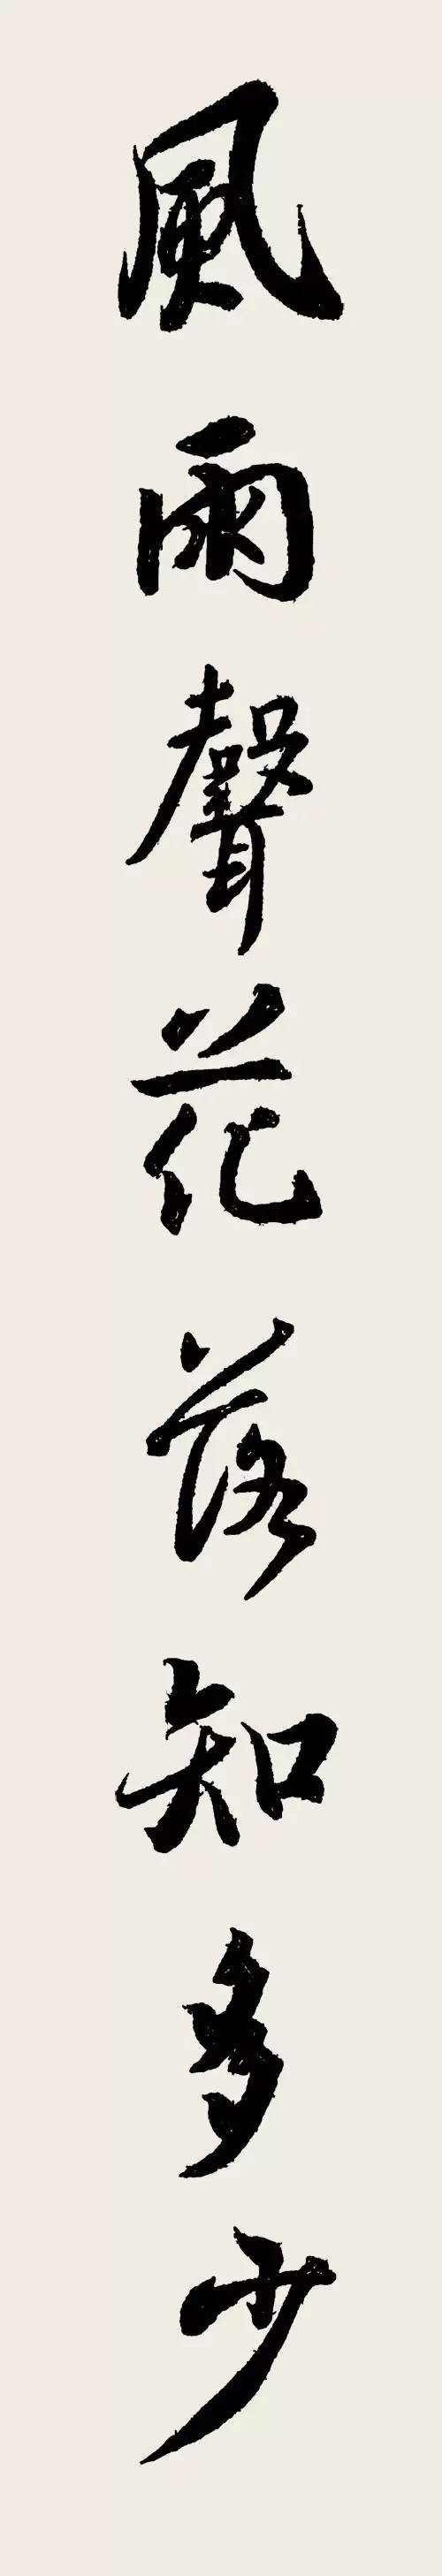 風雨聲花落知多少